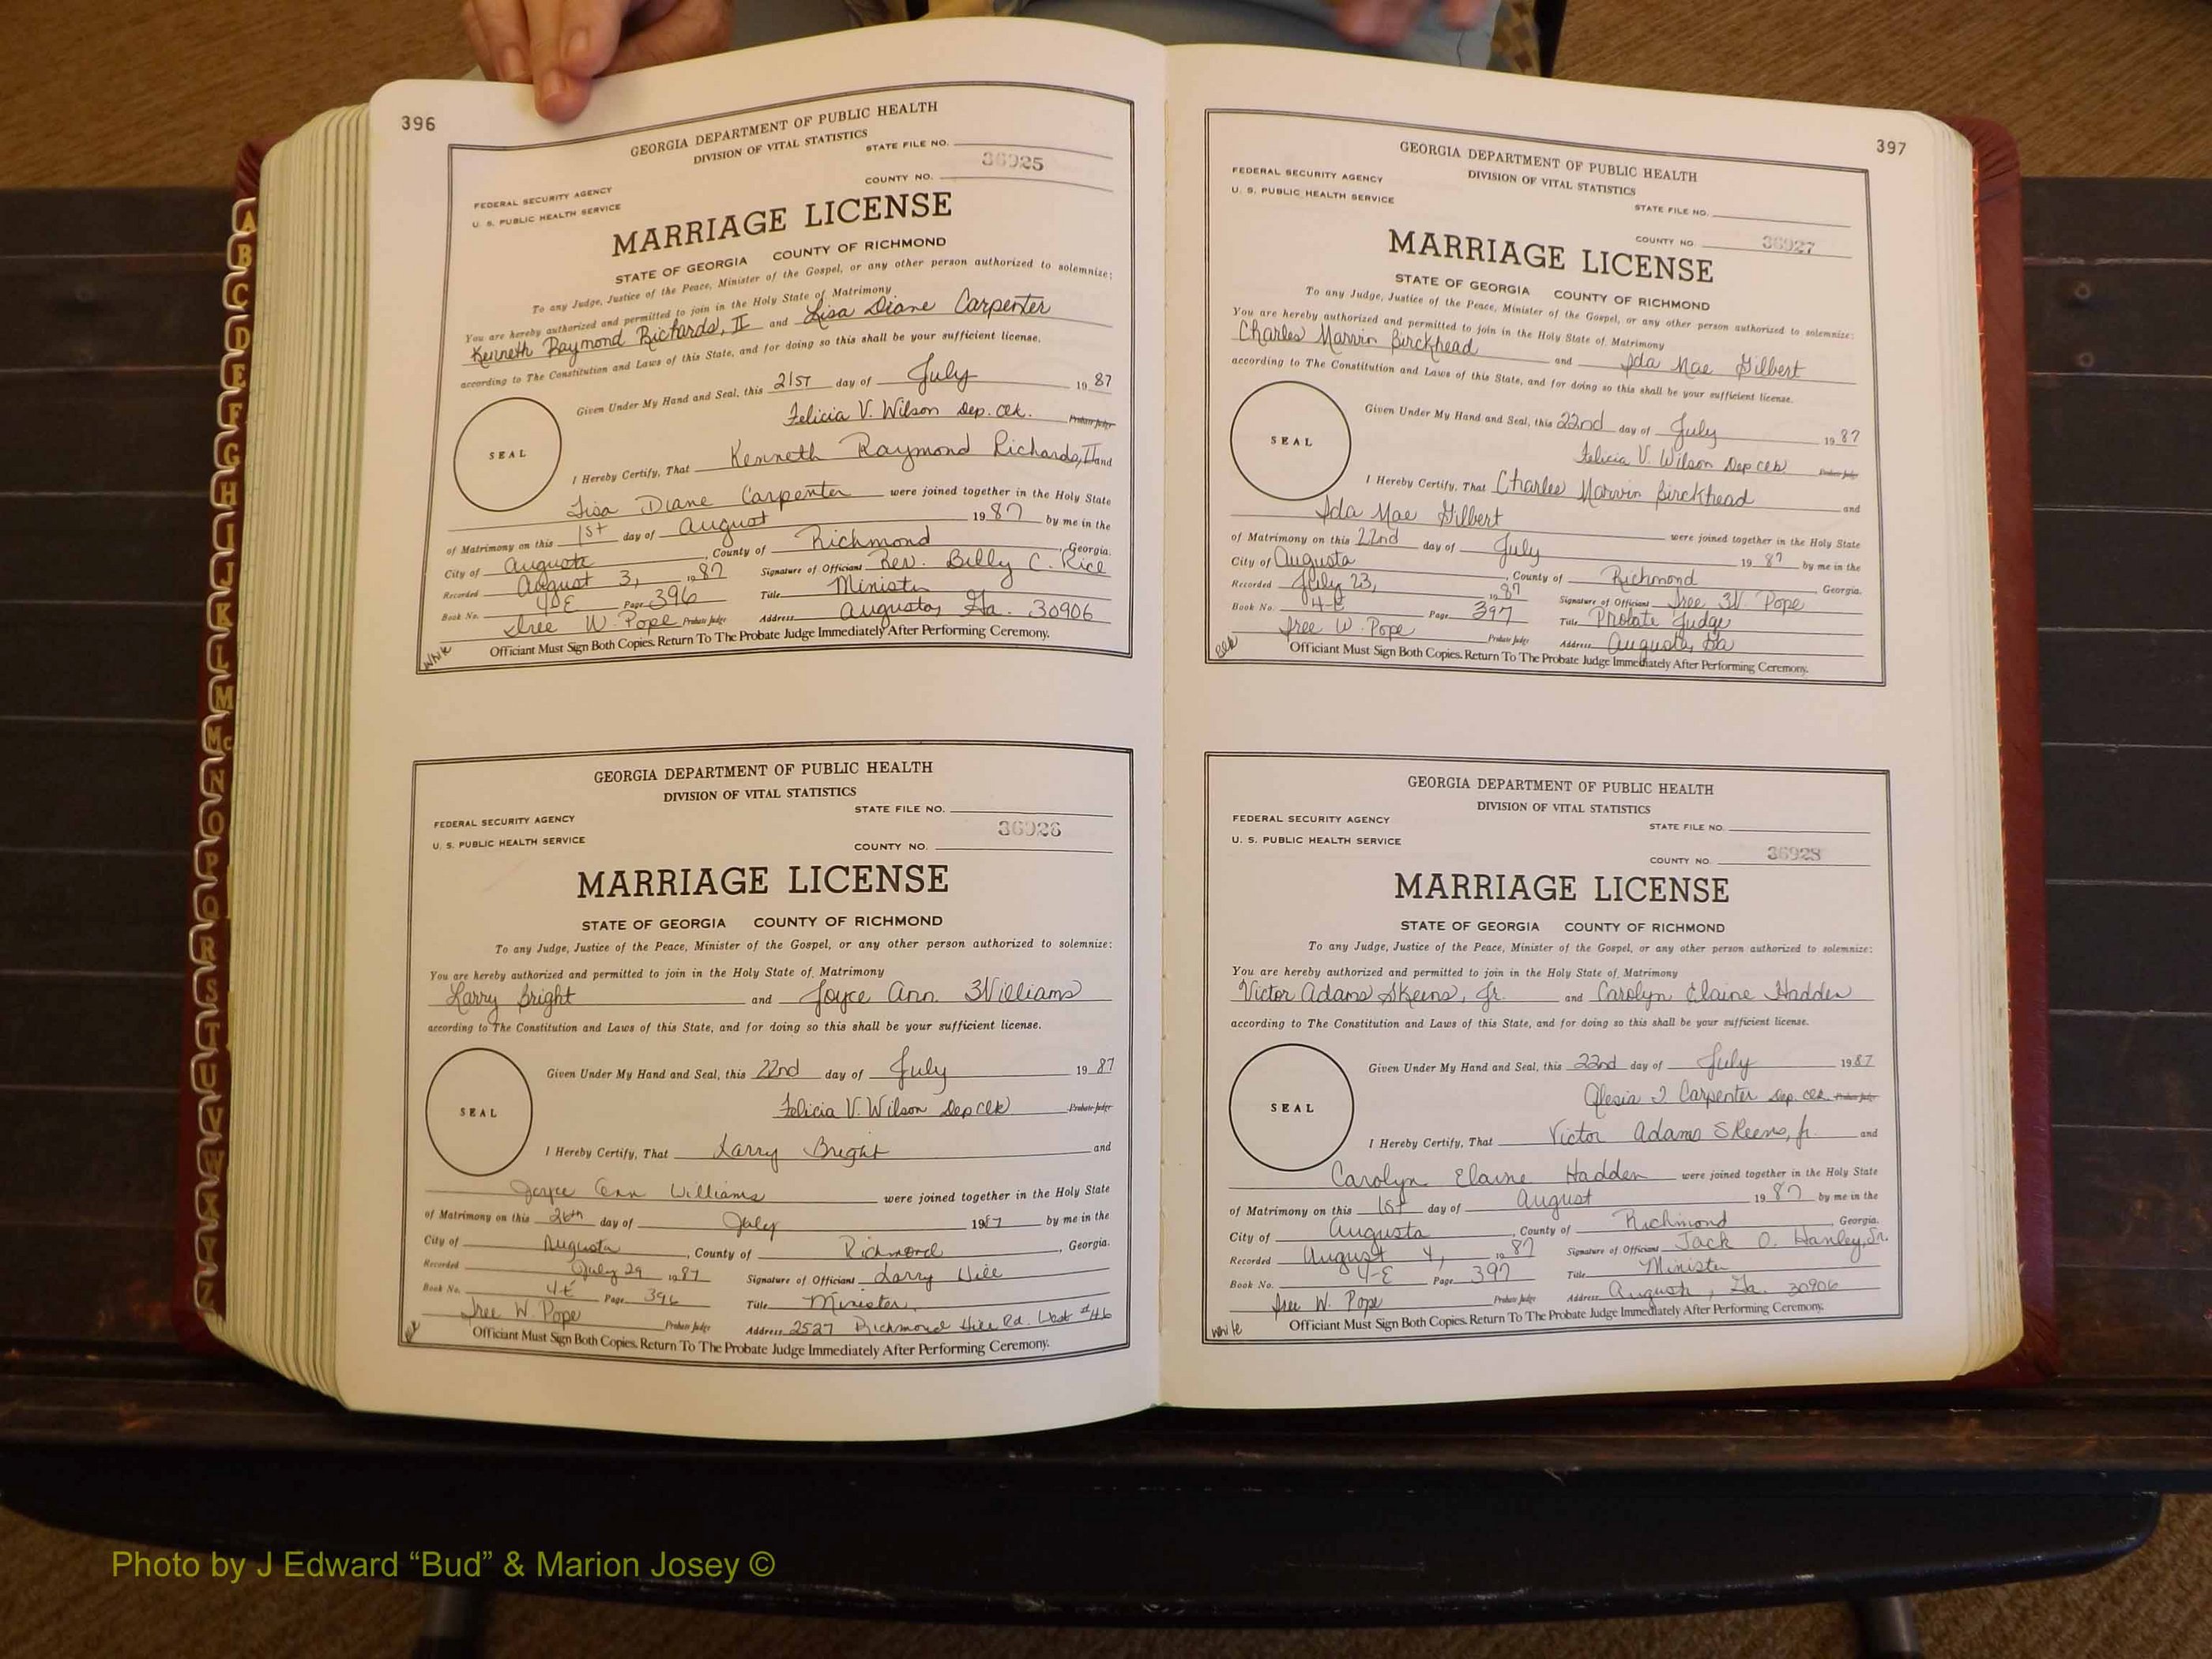 396
GEORGIA DEPARTMENT OF PUBLIC HEALTH
DIVISION OF VITAL STATISTICS
STATE FILE NO.
36925
COUNTY NO.
FEDERAL SECURITY AGENCY
U. S. PUBLIC HEALTH SERVICE
MARRIAGE LICENSE
STATE OF GEORGIA COUNTY OF RICHMOND
To any Judge, Justice of the Peace, Minister of the Gospel, or any other person authorized to solemnize:
You are hereby authorized and permitted to join in the Holy State of Matrimony
Kenneth Raymond Richards, II and Lisa Diane Carpenter
according to The Constitution and Laws of this State, and for doing so this shall be your sufficient license.
Given Under My Hand and Seal, this 21st day of July 1987
Felicia V. Wilson Dep. Clk. Probate Judge
SEAL
I Hereby Certify, That Kenneth Raymond Richards, II and
Lisa Diane Carpenter were joined together in the Holy State
of Matrimony on this 1st day of August 1987 by me in the
City of Augusta, County of Richmond, Georgia.
Recorded August 3, 1987 Signature of Officiant Rev. Billy C. Rice
Book No. 4-E Page 396 Title Minister
Iree W. Pope Probate Judge Address Augusta, Ga. 30906
Officiant Must Sign Both Copies. Return To The Probate Judge Immediately After Performing Ceremony.
White
GEORGIA DEPARTMENT OF PUBLIC HEALTH
DIVISION OF VITAL STATISTICS
STATE FILE NO.
36926
FEDERAL SECURITY AGENCY
U. S. PUBLIC HEALTH SERVICE
COUNTY NO.
MARRIAGE LICENSE
STATE OF GEORGIA COUNTY OF RICHMOND
To any Judge, Justice of the Peace, Minister of the Gospel, or any other person authorized to solemnize:
You are hereby authorized and permitted to join in the Holy State of Matrimony
Larry Bright and Joyce Ann Williams
according to The Constitution and Laws of this State, and for doing so this shall be your sufficient license.
Given Under My Hand and Seal, this 22nd day of July 1987
Felicia V. Wilson Dep Clk Probate Judge
SEAL
I Hereby Certify, That Larry Bright and
Joyce Ann Williams were joined together in the Holy State
of Matrimony on this 26th day of July 1987 by me in the
City of Augusta, County of Richmond, Georgia.
Recorded July 29 1987 Signature of Officiant Larry Hill
Book No. 4-E Page 396 Title Minister
Iree W. Pope Probate Judge Address 2527 Richmond Hill Rd. West #46
Officiant Must Sign Both Copies. Return To The Probate Judge Immediately After Performing Ceremony.
397
GEORGIA DEPARTMENT OF PUBLIC HEALTH
DIVISION OF VITAL STATISTICS
FEDERAL SECURITY AGENCY
U. S. PUBLIC HEALTH SERVICE
STATE FILE NO.
COUNTY NO. 36927
MARRIAGE LICENSE
STATE OF GEORGIA COUNTY OF RICHMOND
To any Judge, Justice of the Peace, Minister of the Gospel, or any other person authorized to solemnize:
You are hereby authorized and permitted to join in the Holy State of Matrimony
Charles Marvin Birckhead and Ida Mae Gilbert
according to The Constitution and Laws of this State, and for doing so this shall be your sufficient license.
Given Under My Hand and Seal, this 22nd day of July 1987
Felicia V. Wilson Dep Clk Probate Judge
SEAL
I Hereby Certify, That Charles Marvin Birckhead and
Ida Mae Gilbert were joined together in the Holy State
of Matrimony on this 22nd day of July 1987 by me in the
City of Augusta, County of Richmond Georgia.
Recorded July 23, 1987 Signature of Officiant Iree W. Pope
Book No. 4-E Page 397 Title Probate Judge
Iree W. Pope Probate Judge Address Augusta, Ga
Officiant Must Sign Both Copies. Return To The Probate Judge Immediately After Performing Ceremony.
Blk
GEORGIA DEPARTMENT OF PUBLIC HEALTH
DIVISION OF VITAL STATISTICS
FEDERAL SECURITY AGENCY
U. S. PUBLIC HEALTH SERVICE
STATE FILE NO.
COUNTY NO. 36928
MARRIAGE LICENSE
STATE OF GEORGIA COUNTY OF RICHMOND
To any Judge, Justice of the Peace, Minister of the Gospel, or any other person authorized to solemnize:
You are hereby authorized and permitted to join in the Holy State of Matrimony
Victor Adams Skeens, Jr. and Carolyn Elaine Hadden
according to The Constitution and Laws of this State, and for doing so this shall be your sufficient license.
Given Under My Hand and Seal, this 22nd day of July 1987
Alesia I Carpenter Dep. Clk. Probate Judge
SEAL
I Hereby Certify, That Victor Adams Skeens, Jr. and
Carolyn Elaine Hadden were joined together in the Holy State
of Matrimony on this 1st day of August 1987 by me in the
City of Augusta, County of Richmond, Georgia.
Recorded August 4, 1987 Signature of Officiant Jack O. Hanley, Sr.
Book No. 4-E Page 397 Title Minister
Iree W. Pope Probate Judge Address Augusta, Ga. 30906
Officiant Must Sign Both Copies. Return To The Probate Judge Immediately After Performing Ceremony.
White
A
B
C
D
E
F
G
H
I
J
K
L
M
Mc
N
O
P
Q
R
S
T
U
V
W
X
Y
Z
Photo by J Edward “Bud” & Marion Josey ©